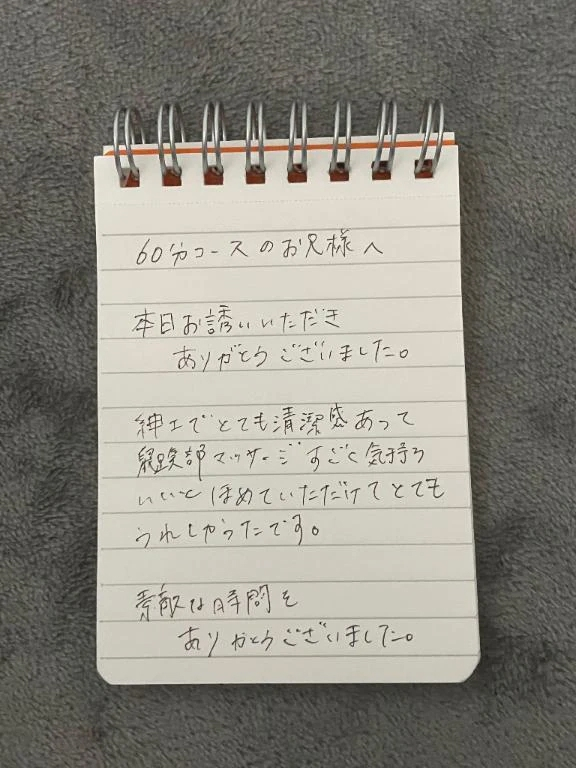 60分コースのお兄様へ
本日お誘いいただき
ありがとうございました。
紳士でとても清潔感あって
鼠蹊部マッサージすごく気持ち
いいとほめていただけてとても
うれしかったです。
素敵な時間を
ありがとうございました。